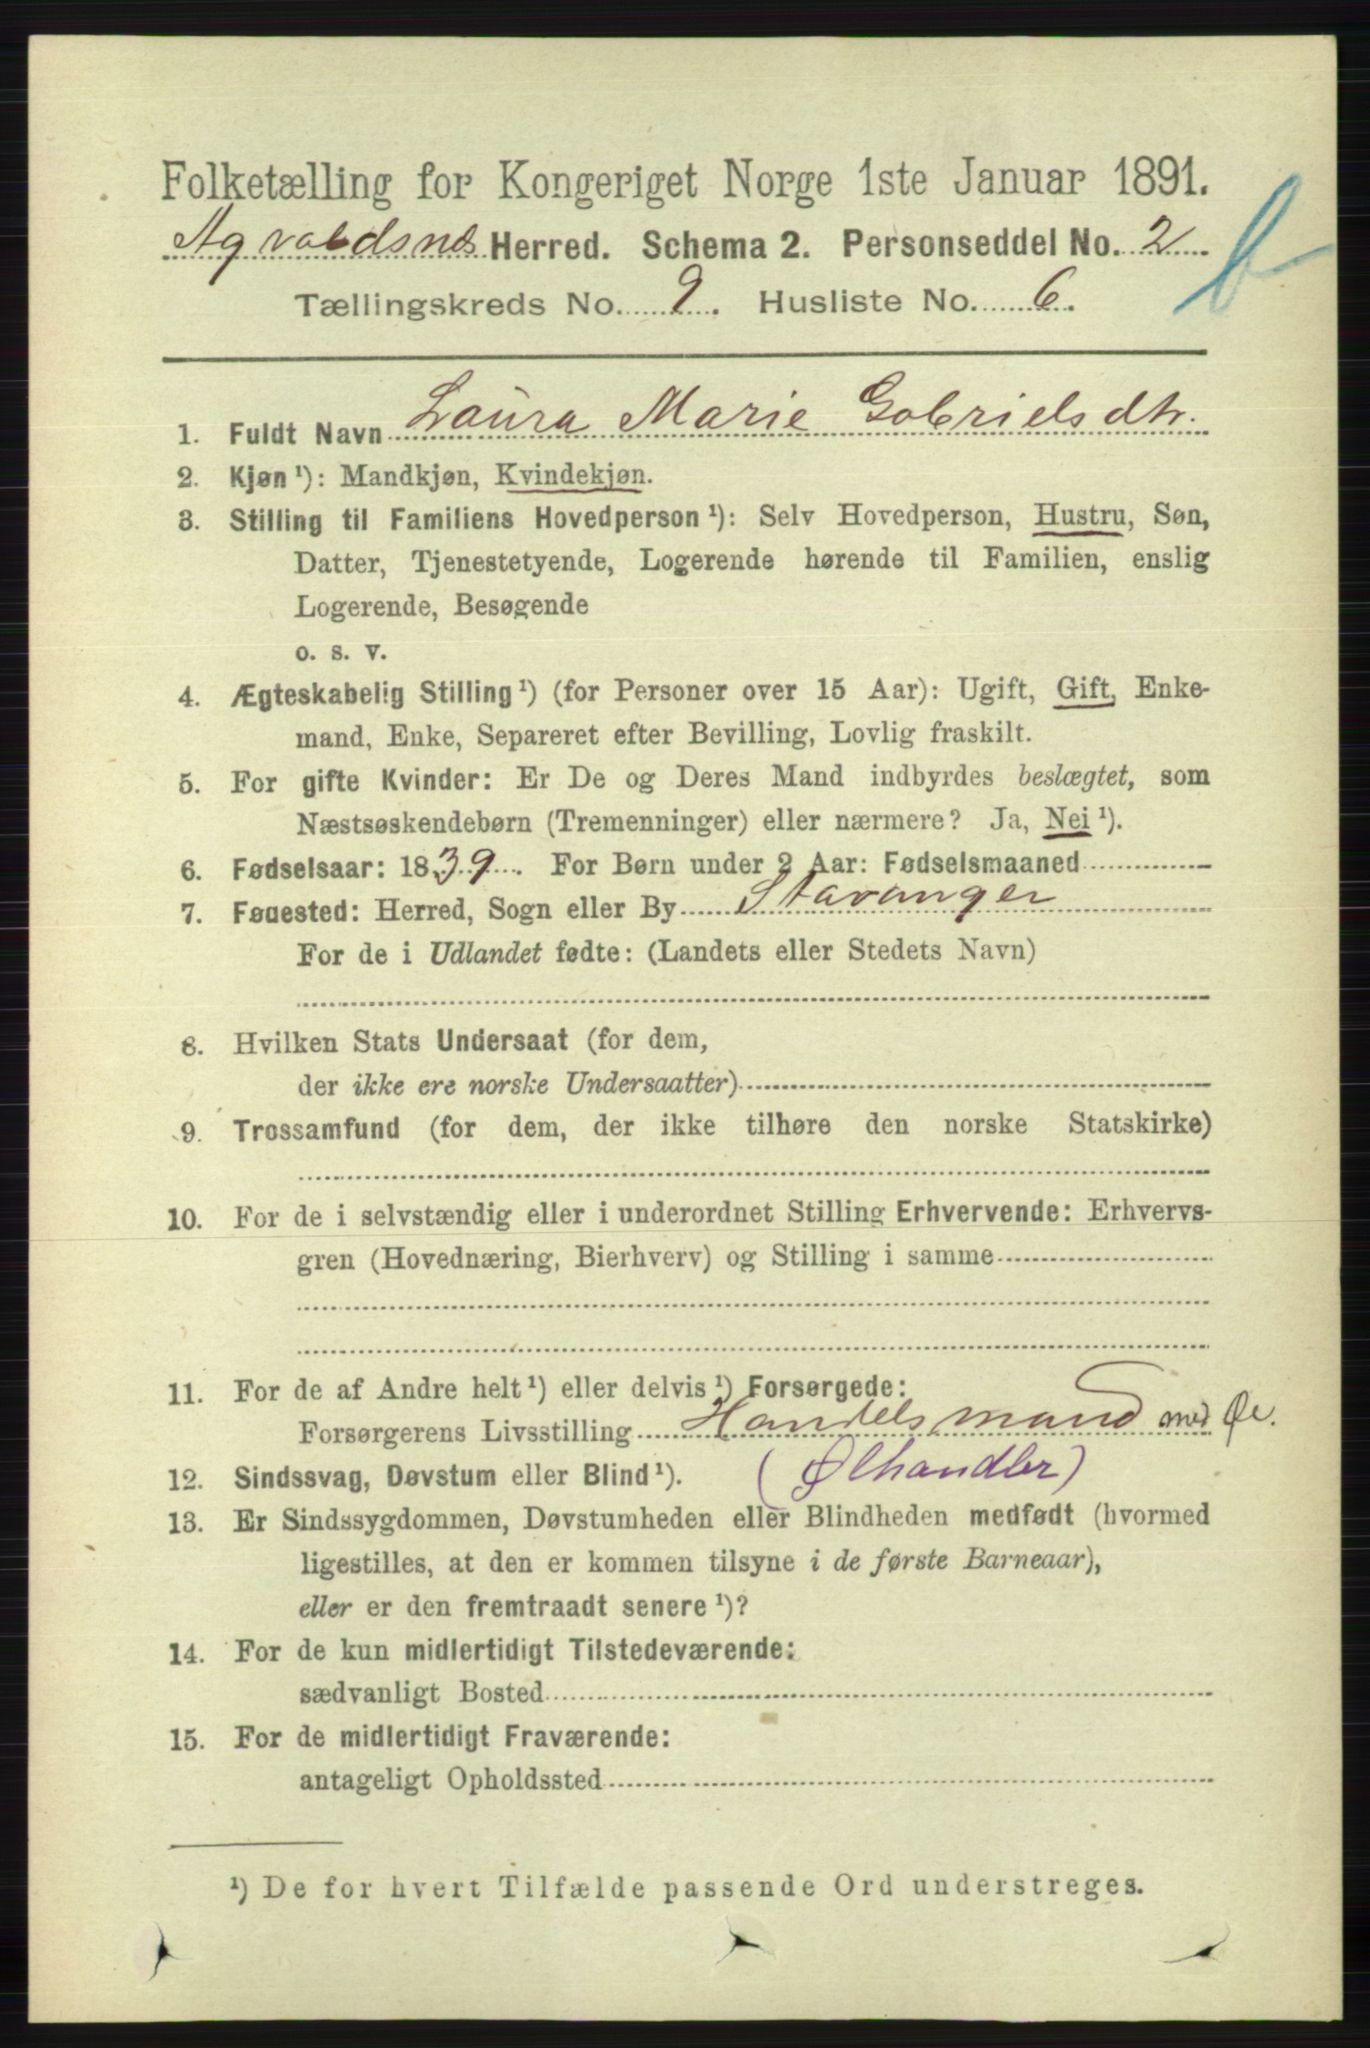 Folketælling for Kongeriget Norge 1ste Januar 1891.
Agvaldsnes Herred. Schema 2. Personseddel No. 2
b
Tællingskreds No. 9. Husliste No. 6.
1. Fuldt Navn Laura Marie Gabrielsdtr.
2. Kjøn ¹): Mandkjøn, Kvindekjøn.
3. Stilling til Familiens Hovedperson ¹): Selv Hovedperson, Hustru, Søn,
Datter, Tjenestetyende, Logerende hørende til Familien, enslig
Logerende, Besøgende
o. s. v.
4. Ægteskabelig Stilling ¹) (for Personer over 15 Aar): Ugift, Gift, Enke-
mand, Enke, Separeret efter Bevilling, Lovlig fraskilt.
5. For gifte Kvinder: Er De og Deres Mand indbyrdes beslægtet, som
Næstsøskendebørn (Tremenninger) eller nærmere? Ja, Nei ¹).
6. Fødselsaar: 1839. For Børn under 2 Aar: Fødselsmaaned
7. Fødested: Herred, Sogn eller By Stavanger
For de i Udlandet fødte: (Landets eller Stedets Navn)
8. Hvilken Stats Undersaat (for dem,
der ikke ere norske Undersaatter)
9. Trossamfund (for dem, der ikke tilhøre den norske Statskirke)
10. For de i selvstændig eller i underordnet Stilling Erhvervende: Erhvervs-
gren (Hovednæring, Bierhverv) og Stilling i samme
11. For de af Andre helt ¹) eller delvis ¹) Forsørgede:
Forsørgerens Livsstilling Handelsmand med Øl.
12. Sindssvag, Døvstum eller Blind ¹). (Ølhandler)
13. Er Sindssygdommen, Døvstumheden eller Blindheden medfødt (hvormed
ligestilles, at den er kommen tilsyne i de første Barneaar),
eller er den fremtraadt senere ¹)?
14. For de kun midlertidigt Tilstedeværende:
sædvanligt Bosted
15. For de midlertidigt Fraværende:
antageligt Opholdssted
¹) De for hvert Tilfælde passende Ord understreges.